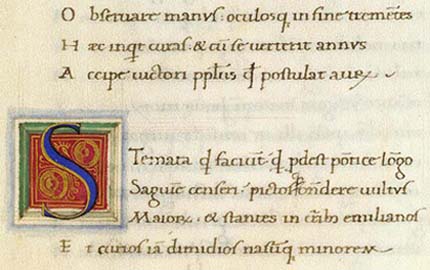 O bseruare manus oculosq in fine trementes
H ęc inqt curas & cū se uerterit annus
A ccipe uictori ppl'us qd postulat aurū
S Temata qd faciūt qd pdest pōtice lōgo
Sāguine censeri pictos ōndere uultus
Maiorū & stantes in curribȝ emilianos
E t curios iā dimidios nasūq minorem